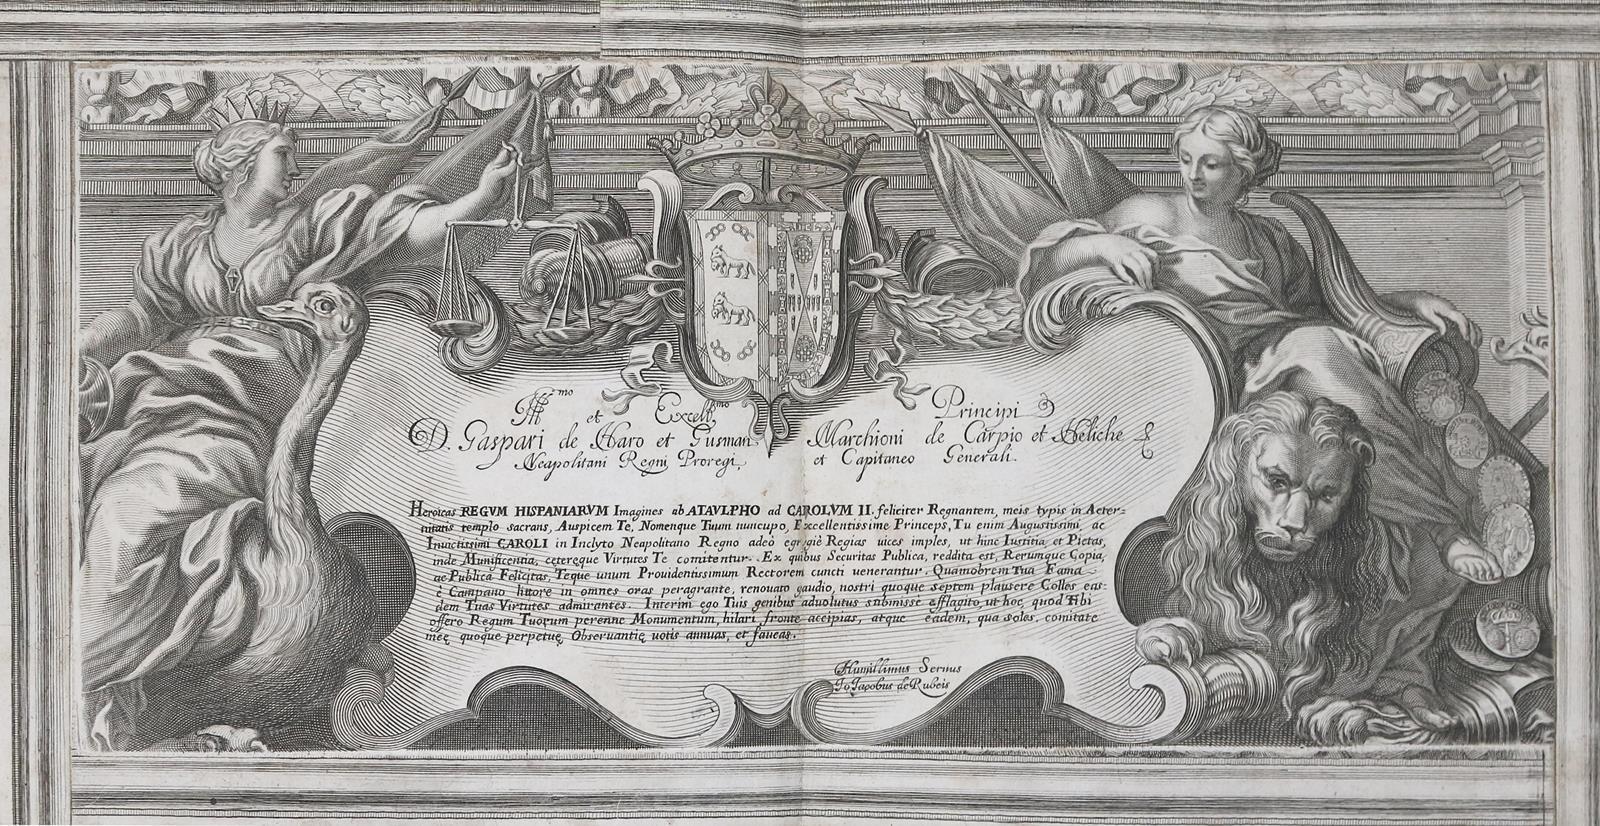 Ill.mo et Excell.mo Principi
D. Gaspari de Haro et Gusman, Marchioni de Carpio et Heliche &
Neapolitani Regni Proregi, et Capitaneo Generali.
Heroicas REGVM HISPANIARVM Imagines ab ATAVLPHO ad CAROLVM II. feliciter Regnantem, meis typis in Aeter-
nitatis templo sacrans, Auspicem Te, Nomenque Tuum nuncupo, Excellentissime Princeps, Tu enim Augustissimi, ac
Inuictissimi CAROLI in Inclyto Neapolitano Regno adeò egregiè Regias uices imples, ut hinc Iustitia, et Pietas,
inde Munificentia, cetereque Virtutes Te comitentur. Ex quibus Securitas Publica, reddita est, Rerumque Copia,
ac Publica Felicitas, Teque unum Prouidentissimum Rectorem cuncti uenerantur. Quamobrem Tua Fama
è Campano littore in omnes oras peragrante, renouato gaudio, nostri quoque septem plausere Colles eas-
dem Tuas Virtutes admirantes. Interim ego Tuis genibus aduolutus submisse efflagito, ut hoc, quod Tibi
offero Regum Tuorum perenne Monumentum, hilari fronte accipias, atque eadem, qua soles, comitate
meę quoque perpetuę Obseruantię uotis annuas, et faueas.
Humillimus Seruus
Io Jacobus de Rubeis